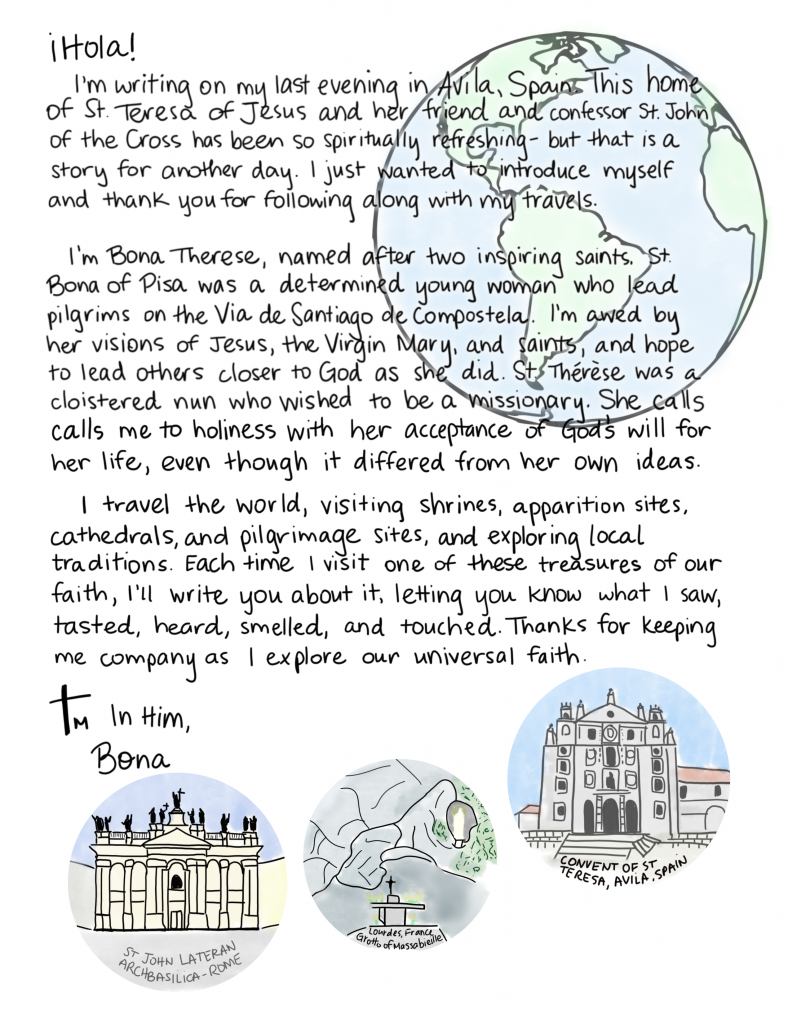 ¡Hola!
I'm writing on my last evening in Avila, Spain. This home
of St. Teresa of Jesus and her friend and confessor St. John
of the Cross has been so spiritually refreshing- but that is a
story for another day. I just wanted to introduce myself
and thank you for following along with my travels.
I'm Bona Therese, named after two inspiring saints. St.
Bona of Pisa was a determined young woman who lead
pilgrims on the Via de Santiago de Compostela. I'm awed by
her visions of Jesus, the Virgin Mary, and saints, and hope
to lead others closer to God as she did. St. Thérèse was a
cloistered nun who wished to be a missionary. She calls
calls me to holiness with her acceptance of God's will for
her life, even though it differed from her own ideas.
I travel the world, visiting shrines, apparition sites,
cathedrals, and pilgrimage sites, and exploring local
traditions. Each time I visit one of these treasures of our
faith, I'll write you about it, letting you know what I saw,
tasted, heard, smelled, and touched. Thanks for keeping
me company as I explore our universal faith.
M In Him,
Bona
ST JOHN LATERAN
ARCHBASILICA-ROME
Lourdes, France
Grotto of Massabielle
CONVENT OF ST
TERESA, AVILA, SPAIN